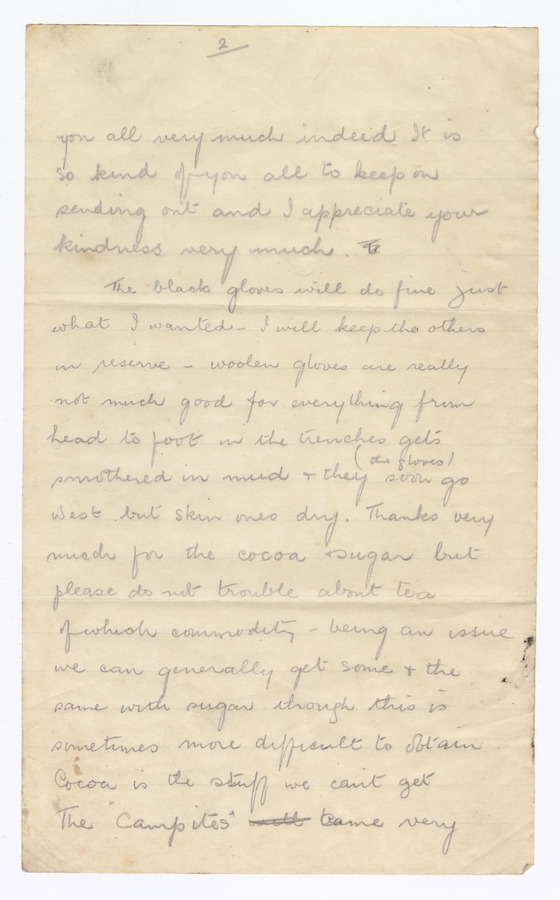 2
you all very much indeed It is
so kind of you all to keep on
sending out and I appreciate your
kindness very much. To
The black gloves will do fine just
what I wanted - I will keep the others
in reserve - woolen gloves are really
not much good for everything from
head to foot in the trenches gets
(the gloves)
smothered in mud + they soon go
West but skin ones dry. Thanks very
much for the cocoa + sugar but
please do not trouble about tea
of which commodity - being an issue
we can generally get some + the
same with sugar though this is
sometimes more difficult to obtain
Cocoa is the stuff we cant get
The "Campites" will came very